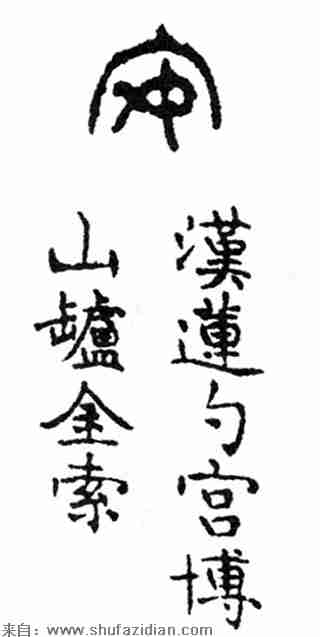 漢蓮勺宫博
山罏金索
来自：www.shufazidian.com